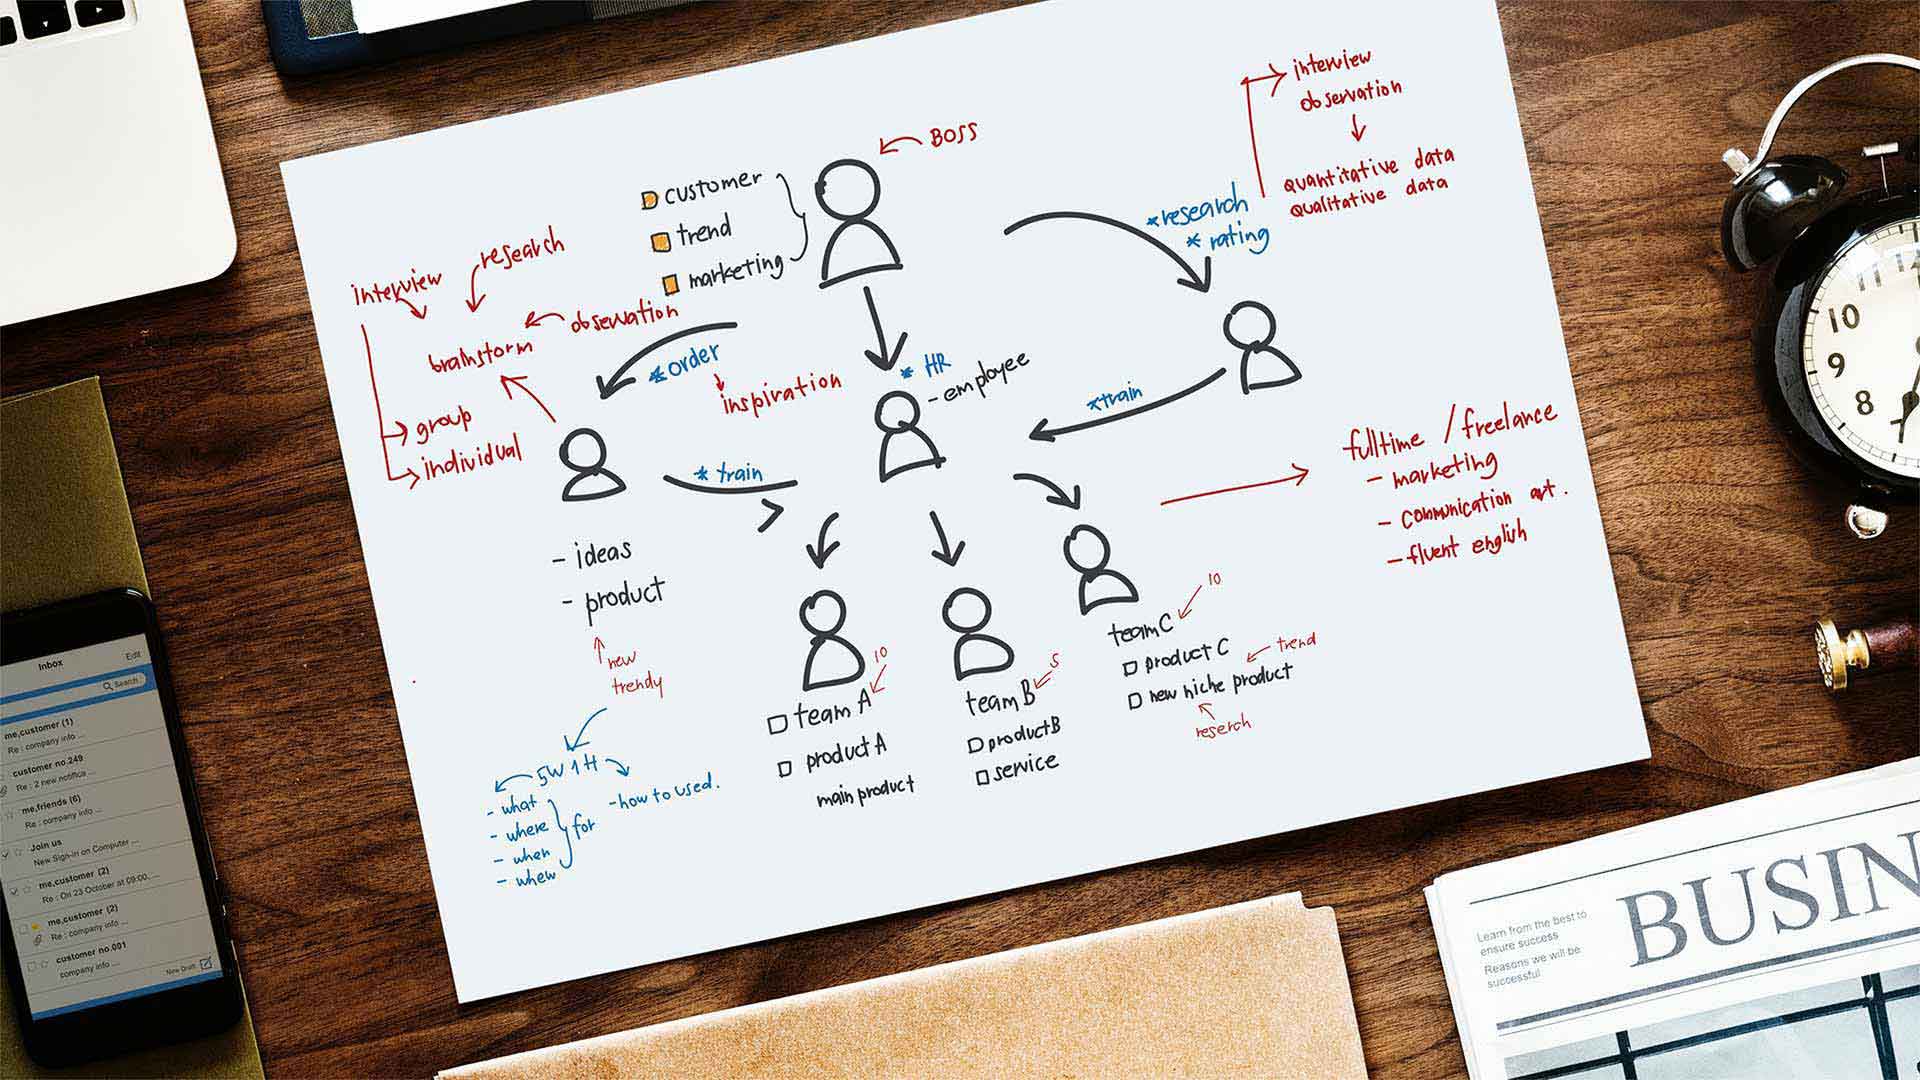 BOSS
customer
trend
marketing
interview
observation
quantitative data
qualitative data
*research
* rating
research
interview
observation
brainstorm
*order
inspiration
group
individual
* HR
- employee
*train
* train
fulltime / freelance
- marketing
- communication art.
- fluent english
- ideas
- product
new
trendy
5W 1H
- what
- where
- when
- whew
for
- how to used.
10
team A
product A
main product
5
team B
product B
service
10
team C
product C
trend
new niche product
reserch
Inbox
Edit
Search
me,customer (1)
Re : company info ...
customer no.249
Re : 2 new notifica ...
me,friends (6)
Re : company info ...
Join us
New Sign-in on Computer ...
me,customer (2)
Re : On 23 October at 09:00, ...
me,customer (2)
Re : company info ...
customer no.001
company info ...
New Draft
12
11
10
9
8
Learn from the best to
ensure success
Reasons we will be
successful
BUSIN